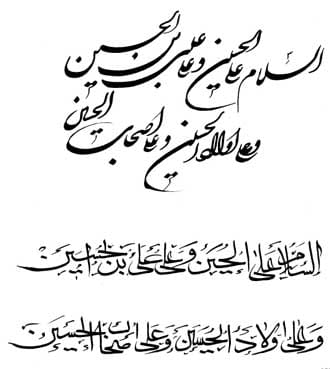 السلام علی الحسین و علی علی بن الحسین
و علی اولاد الحسین و علی اصحاب الحسین
السلام علی الحسین و علی علی بن الحسین
و علی اولاد الحسین و علی اصحاب الحسین